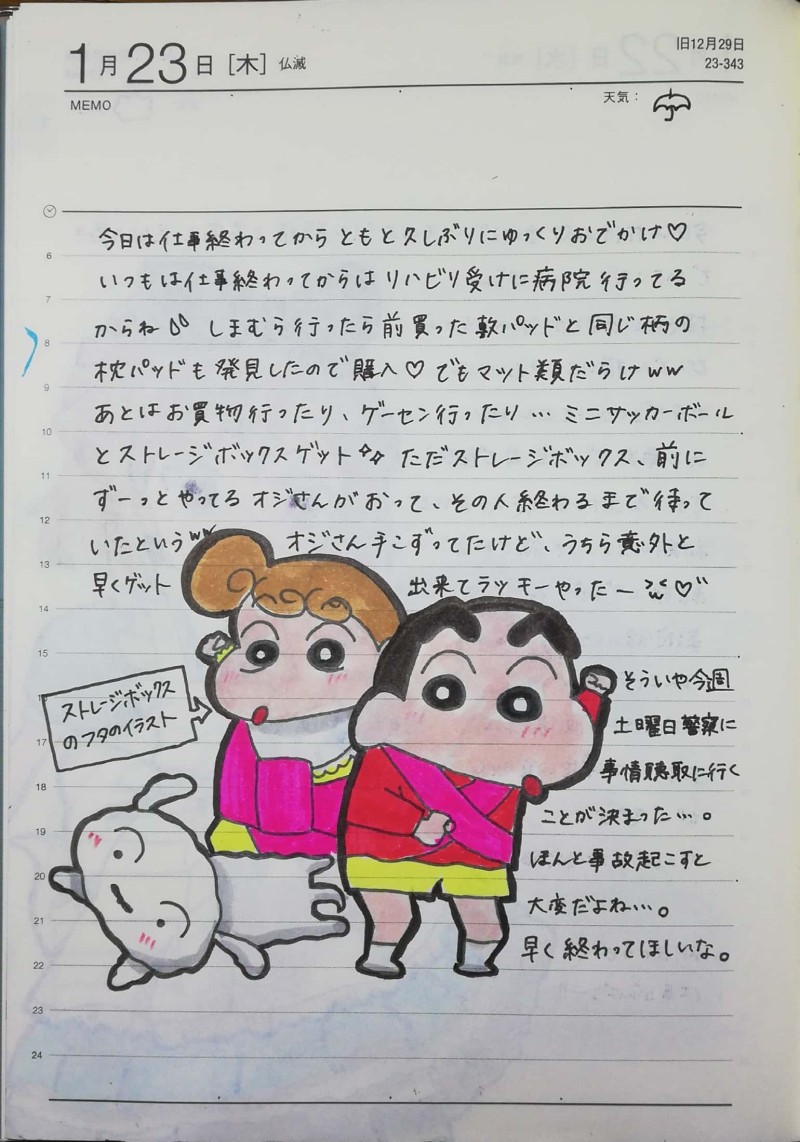 1月23日[木] 仏滅
旧12月29日
23-343
MEMO
天気：
今日は仕事終わってからともと久しぶりにゆっくりおでかけ♡
いつもは仕事終わってからはリハビリ受けに病院行ってる
からね しまむら行ったら前買った敷パッドと同じ柄の
枕パッドも発見したので購入♡でもマット類だらけww
あとはお買物行ったり、ゲーセン行ったり…ミニサッカーボール
とストレージボックスゲット✧✧ ただストレージボックス、前に
ずーっとやってるオジさんがおって、その人終わるまで待って
いたというww オジさん手こずってたけど、うちら意外と
早くゲット 出来てラッキーやったー ♡
ストレージボックス
のフタのイラスト
そういや今週
土曜日警察に
事情聴取に行く
ことが決まった…。
ほんと事故起こすと
大変だよね…。
早く終わってほしいな。
6
7
8
9
10
11
12
13
14
15
16
17
18
19
20
21
22
23
24